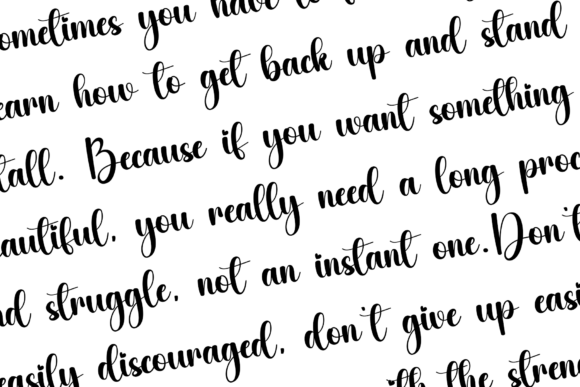 ometimes you have to
earn how to get back up and stand
tall. Because if you want something
eautiful, you really need a long proc
nd struggle, not an instant one.Don't
easily discouraged, don't give up easi
th the stren